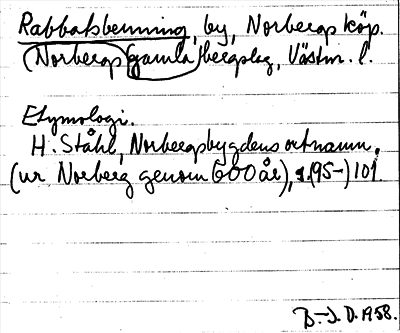 Rabbatsbenning, by, Norbergs köp.
(Norbergs gamla) bergslag, Västm. l.
Etymologi.
H. Ståhl, Norbergsbygdens ortnamn,
(ur Norberg genom 600 år), s. (95-) 101.
B.-J. D. 1958.